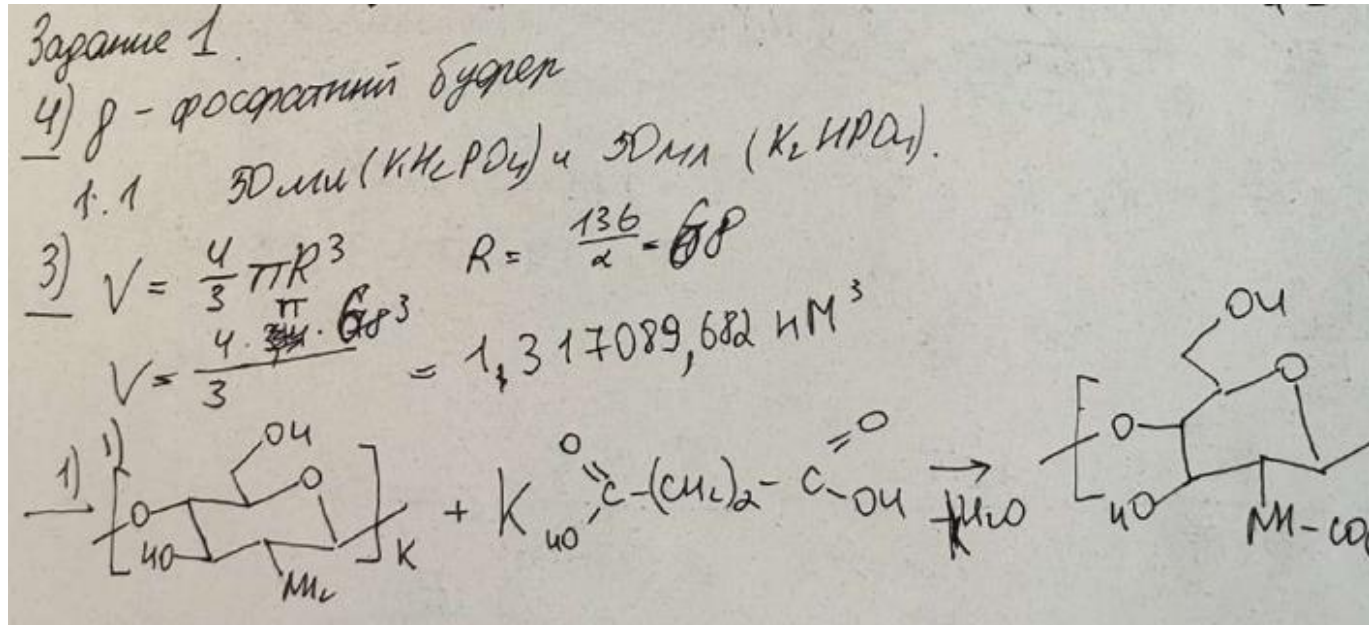 Задание 1.
4) g - фосфатний буфер
1.1 50 мл (KH₂PO₄) и 50 мл (K₂HPO₄).
3) V = 4/3 πR³ R = 136/2 = 68
V = 4 · π · 68³ / 3 = 1,317089,682 нм³
1) 1) [O HO OH O NH₂]K + K HO O C-(CH₂)₂-C O OH → -KH₂O [O HO OH O NH-CO